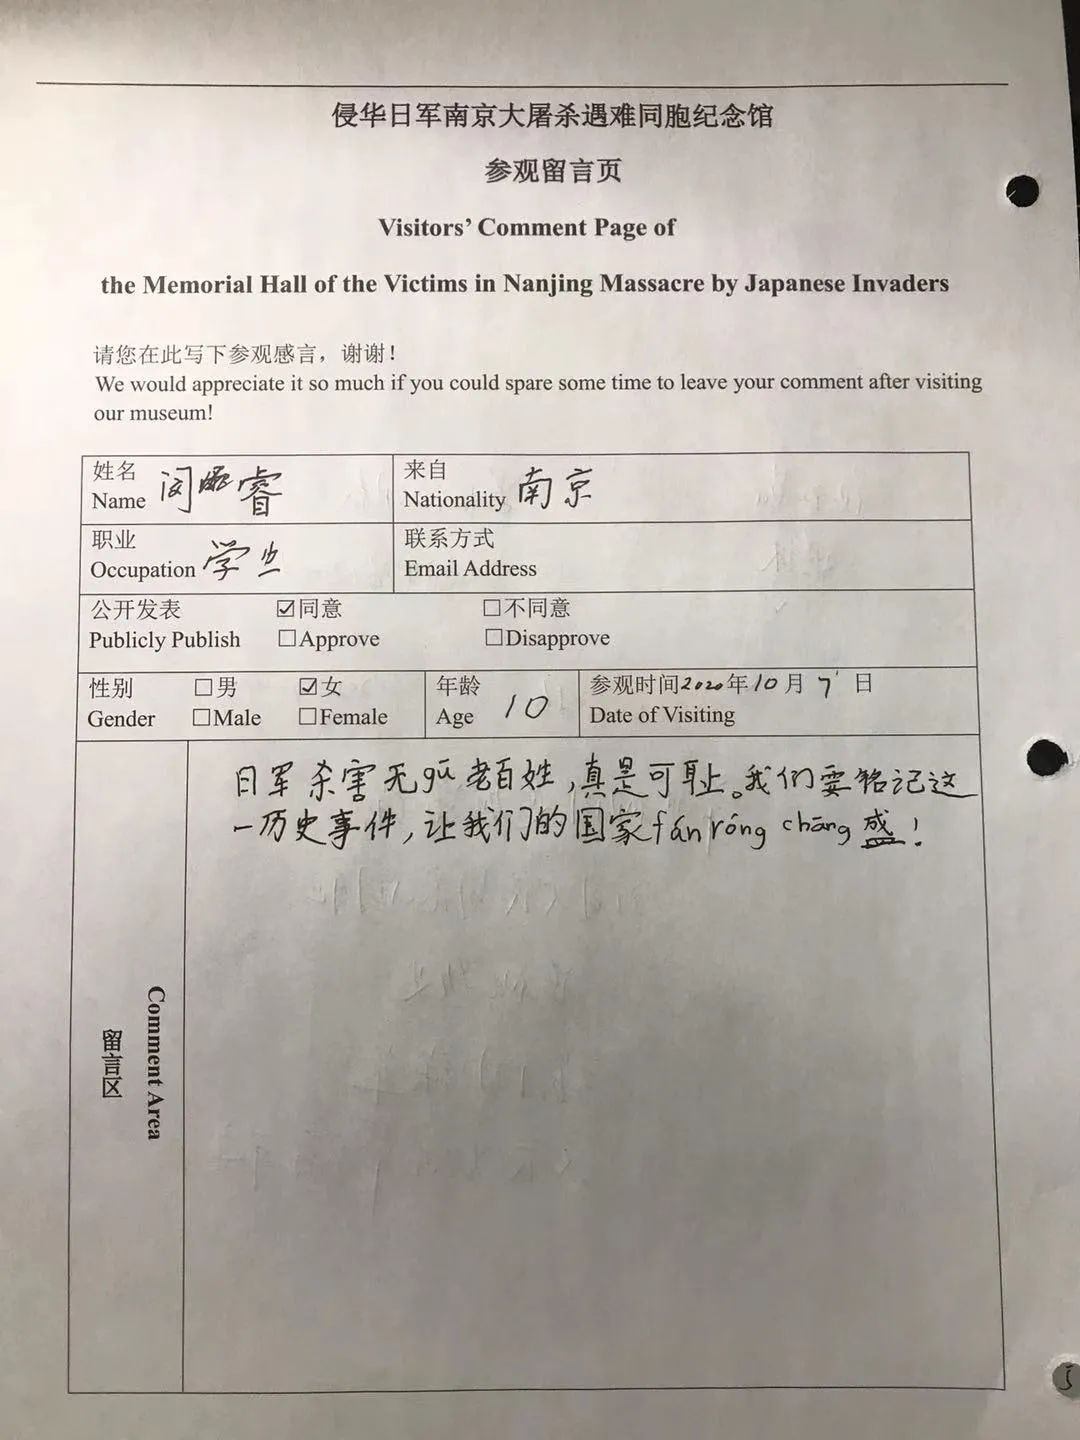 侵华日军南京大屠杀遇难同胞纪念馆
参观留言页
Visitors' Comment Page of
the Memorial Hall of the Victims in Nanjing Massacre by Japanese Invaders
请您在此写下参观感言，谢谢！
We would appreciate it so much if you could spare some time to leave your comment after visiting
our museum!
姓名
Name 闵 睿
来自
Nationality 南京
职业
Occupation 学生
联系方式
Email Address
公开发表 ☑同意 □不同意
Publicly Publish □Approve □Disapprove
性别 □男 ☑女
Gender □Male □Female
年龄
Age 10
参观时间2020年10月7日
Date of Visiting
留言区
Comment Area
日军杀害无gū老百姓，真是可耻。我们要铭记这
一历史事件，让我们的国家fán róng chāng盛！